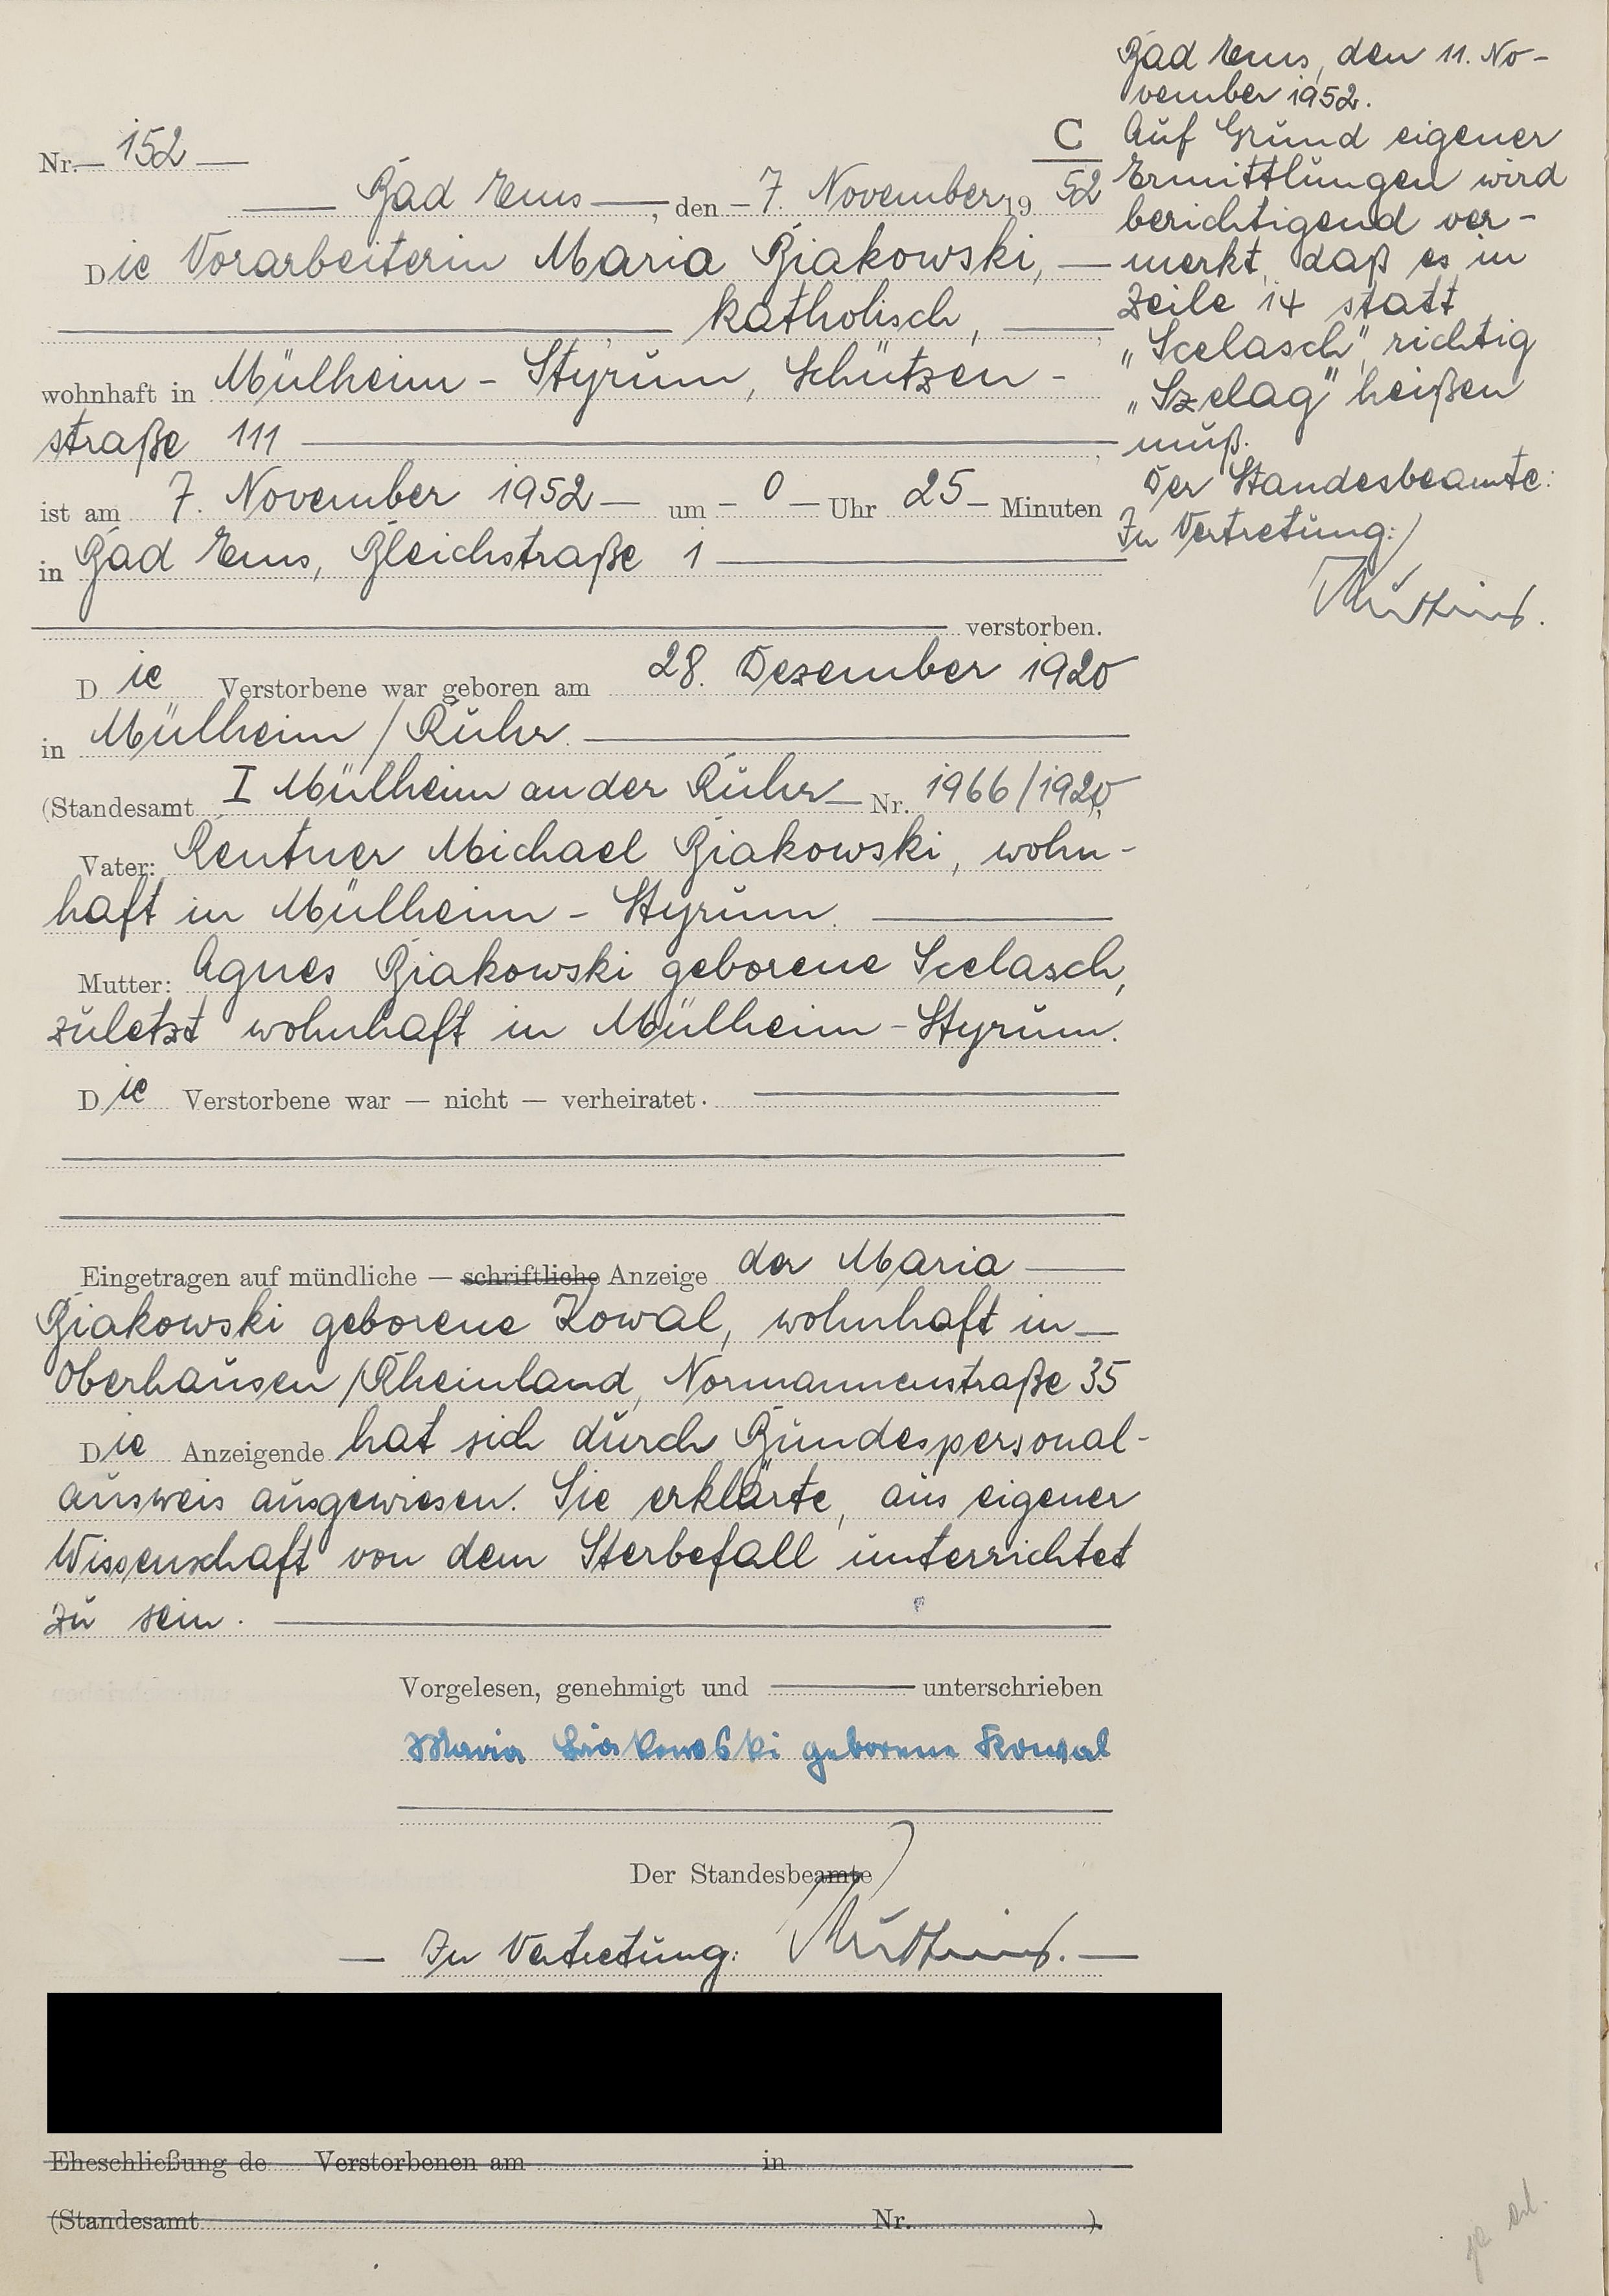 Nr. 152
C
Bad Ems, den 7. November 1952
Die Vorarbeiterin Maria Biakowski,
katholisch,
wohnhaft in Mülheim - Styrum, Schützen-
straße 111
ist am 7. November 1952 um 0 Uhr 25 Minuten
in Bad Ems, Bleichstraße 1
verstorben.
Die Verstorbene war geboren am 28. Dezember 1920
in Mülheim / Ruhr.
(Standesamt I Mülheim an der Ruhr Nr. 1966/1920)
Vater: Rentner Michael Biakowski, wohn-
haft in Mülheim - Styrum.
Mutter: Agnes Biakowski geborene Scelasch,
zuletzt wohnhaft in Mülheim - Styrum.
Die Verstorbene war — nicht — verheiratet.
Eingetragen auf mündliche — schriftliche Anzeige der Maria
Biakowski geborene Kowal, wohnhaft in
Oberhausen / Rheinland, Normannenstraße 35
Die Anzeigende hat sich durch Bundespersonal-
ausweis ausgewiesen. Sie erklärte, aus eigener
Wissenschaft von dem Sterbefall unterrichtet
zu sein.
Vorgelesen, genehmigt und unterschrieben
Maria Biakowski geborene Kowal
Der Standesbeamte
In Vertretung:
Eheschließung de Verstorbenen am in
(Standesamt Nr. )
Bad Ems, den 11. No-
vember 1952.
Auf Grund eigener
Ermittlungen wird
berichtigend ver-
merkt, daß es in
Zeile 14 statt
„Scelasch“ richtig
„Szelag“ heißen
muß.
Der Standesbeamte:
In Vertretung: